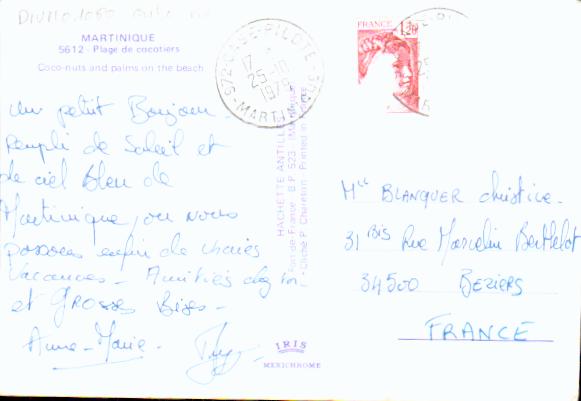 MARTINIQUE
5612 - Plage de cocotiers
Coco-nuts and palms on the beach
Un petit Bonjour
rempli de Soleil et
de ciel Bleu de
Martinique, où nous
passons enfin de vraies
Vacances - Amitiés chez toi
et GROSSES Bises -
Anne-Marie -
972 CASE-PILOTE
17 H
25-10
1979
MARTINIQUE
FRANCE
1,20
HACHETTE ANTILLES
Fort-de-France - B.P. 523
Cliché P. Chareton - Printed in
IRIS
MEXICHROME
Mlle BLANQUER Christine.
31 BIS Rue Marcelin Berthelot
34500 BEZIERS
FRANCE